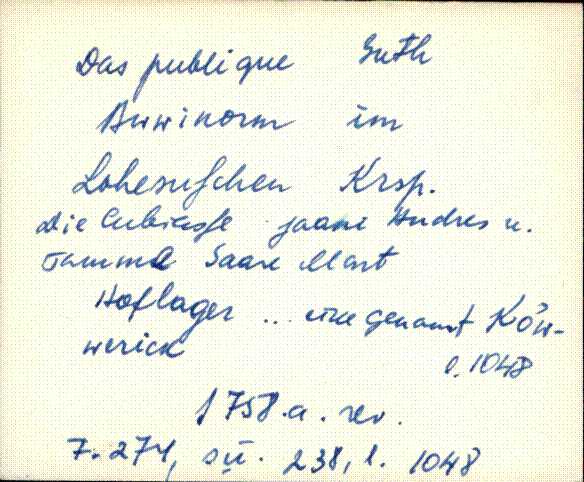 Das publique Guth
Awwinorm im
Lohesuschen Krsp.
die Cubiasse jaani Andres u.
Tamma Saare Mart
Hoflager .. eine genannt Köw-
werick
l. 1048
1758.a. rev.
7.274, sü. 238, l. 1048